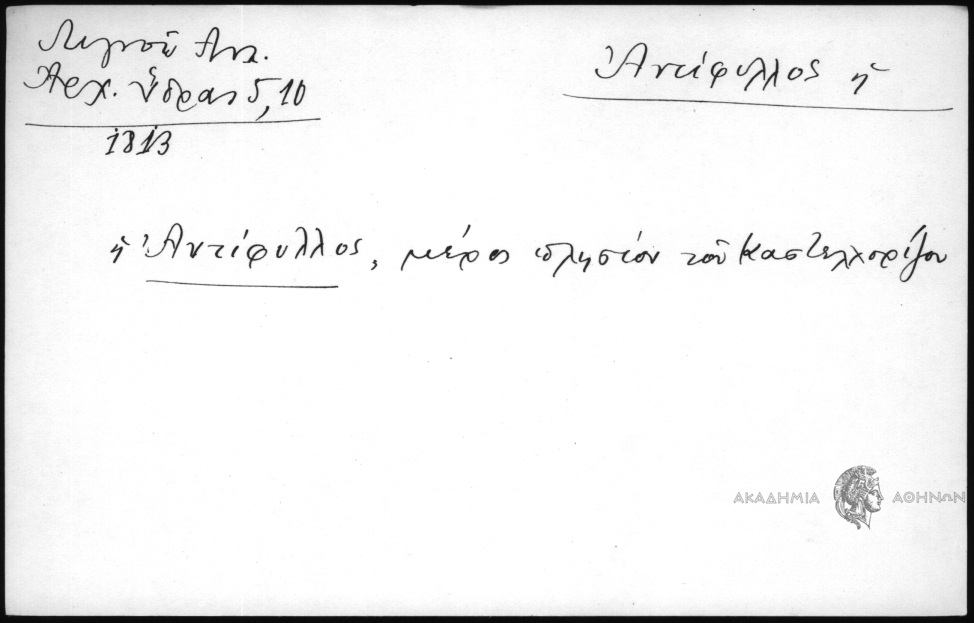 Λιγνοῦ Αντ.
Ἀρχ. Ὕδρας 5, 10
1813
Ἀντίφυλλος ἡ
ἡ Ἀντίφυλλος, μέρος πλησίον τοῦ Καστελλορίζου
ΑΚΑΔΗΜΙΑ ΑΘΗΝΩΝ